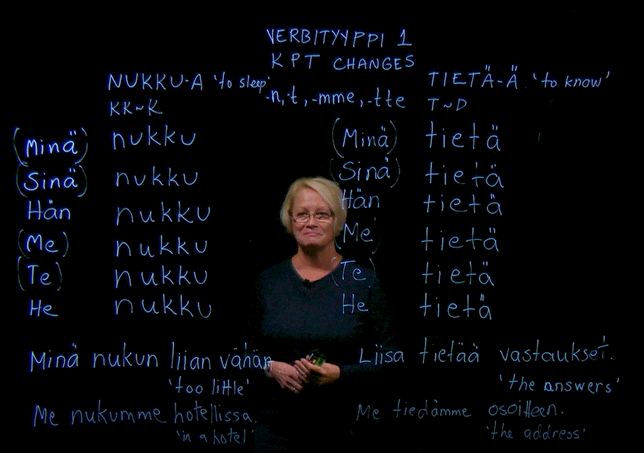 VERBITYYPPI 1
KPT CHANGES
NUKKU-A 'to sleep'
KK~K
-n, -t, -mme, -tte
TIETÄ-Ä 'to know'
T~D
(Minä) nukku
(Sinä) nukku
Hän nukku
(Me) nukku
(Te) nukku
He nukku
(Minä) tietä
(Sinä) tietä
Hän tietä
(Me) tietä
(Te) tietä
He tietä
Minä nukun liian vähän
'too little'
Me nukumme hotellissa.
'in a hotel'
Liisa tietää vastaukset.
'the answers'
Me tiedämme osoitteen.
'the address'